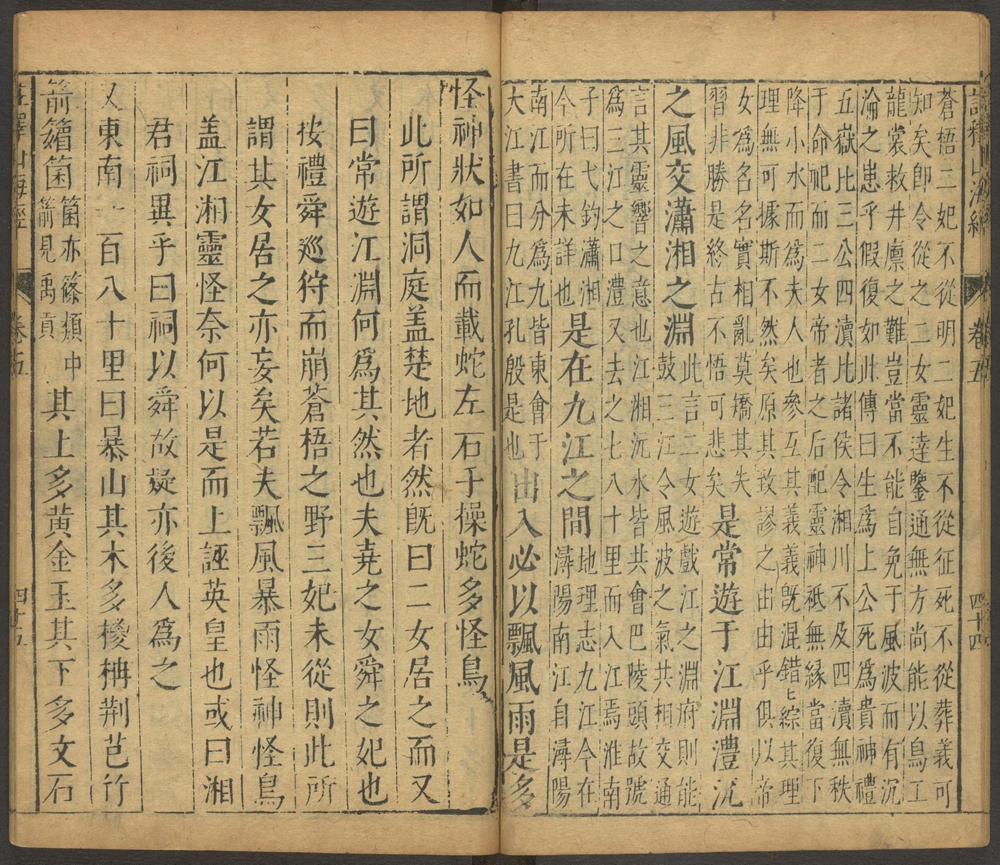 蒼梧二妃不從明二妃生不從征死不從葬義可
知矣即令從之二女靈達鑒通無方尚能以鳥工
龍裳救井廩之難豈當不能自免于風波而有沉
淪之患乎假復如此傳曰生爲上公死爲貴神禮
五嶽比三公四瀆比諸侯令湘川不及四瀆無秩
于命祀而二女帝者之后配靈神祇無緣當復下
降小水而爲夫人也參互其義義既混錯錯綜其理
理無可據斯不然矣原其致謬之由由乎俱以帝
女爲名名實相亂莫矯其失
習非勝是終古不悟可悲矣
是常遊于江淵澧沅
之風交瀟湘之淵
此言二女遊戲江之淵府則能
鼓三江令風波之氣共相交通
言其靈響之意也江湘沅水皆共會巴陵頭故號
爲三江之口澧又去之七八十里而入江焉淮南
子曰弋釣瀟湘
今所在未詳也
是在九江之間
地理志九江今在
潯陽南江自潯陽
南江而分爲九皆東會于
大江書曰九江孔殷是也
出入必以飄風雨是多
註釋山海經 卷五 四十四
怪神狀如人而載蛇左右手操蛇多怪鳥
此所謂洞庭盖楚地者然旣曰二女居之而又
曰常遊江淵何爲其然也夫堯之女舜之妃也
按禮舜巡狩而崩蒼梧之野三妃未從則此所
謂其女居之亦妄矣若夫飄風暴雨怪神怪鳥
盖江湘靈怪奈何以是而上誣英皇也或曰湘
君祠異乎曰祠以舜故疑亦後人爲之
又東南一百八十里曰暴山其木多椶枏荆芑竹
箭䉋箘
箘亦篠類中
箭見禹貢
其上多黃金玉其下多文石
註釋山海經 卷五 四十五